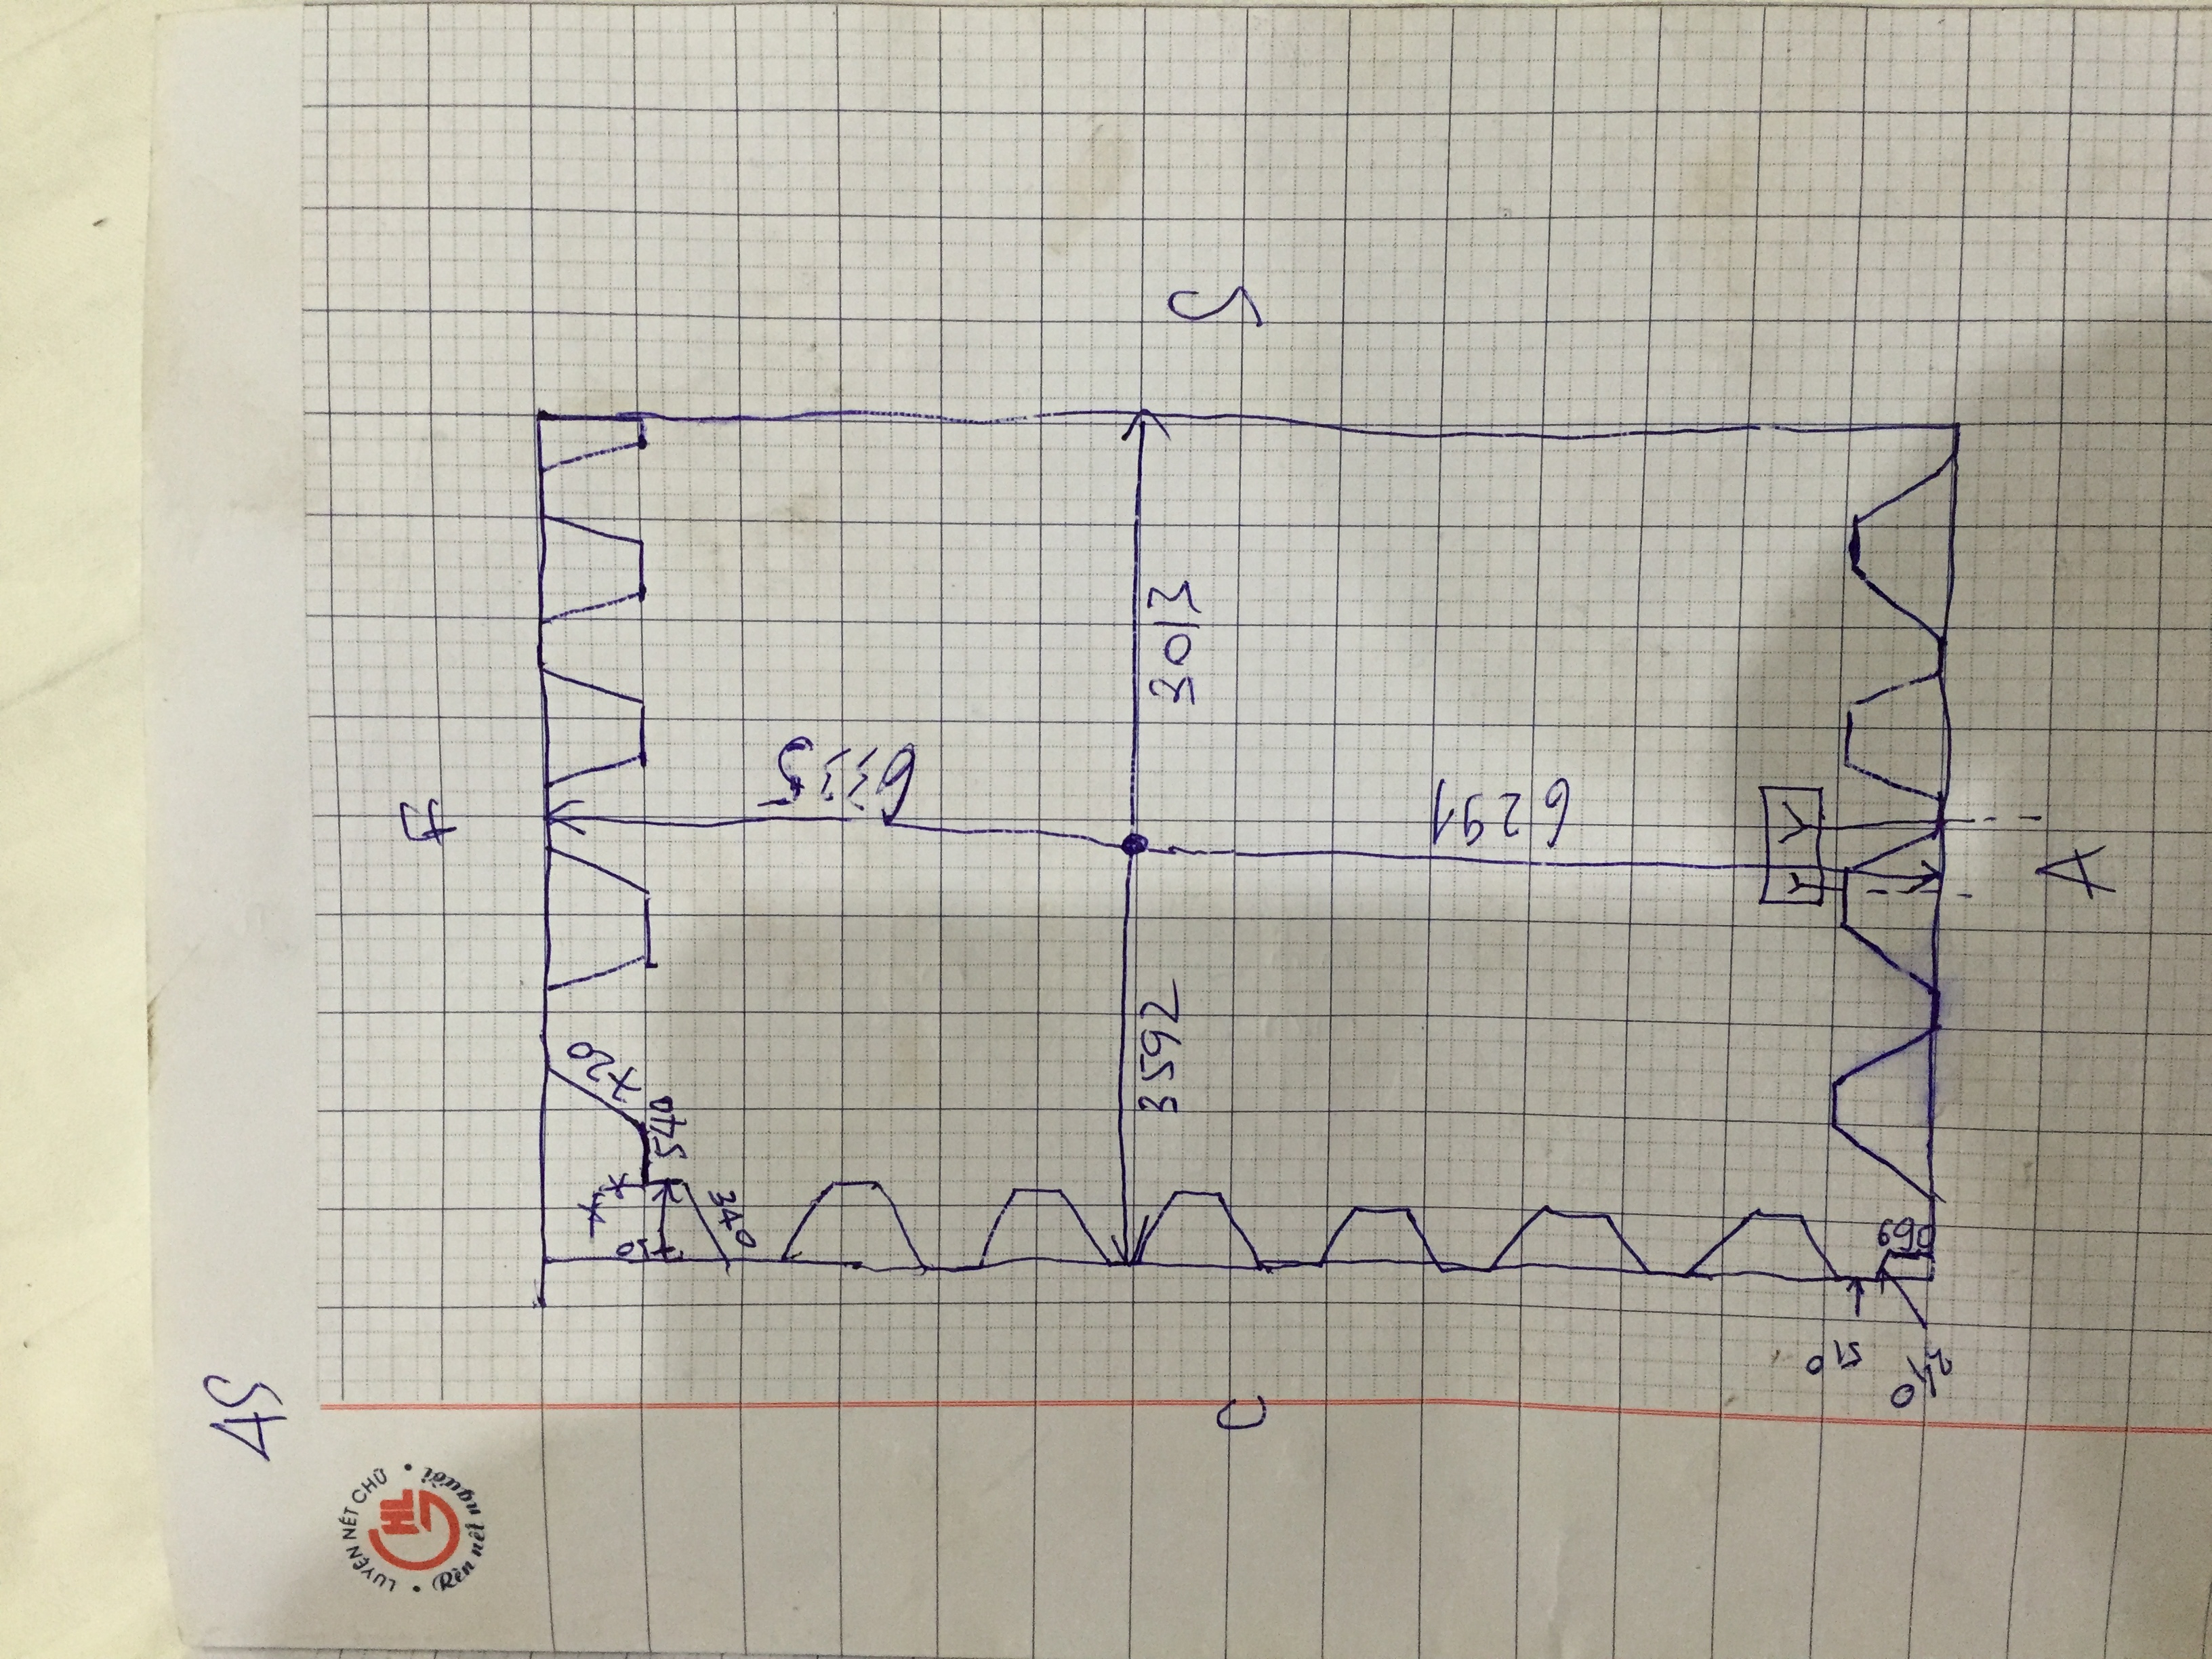 4S
LUYỆN NÉT CHỮ
GHL
Rèn nết người
F
720
540
340
6335
3592
3013
S
6291
510
690
A